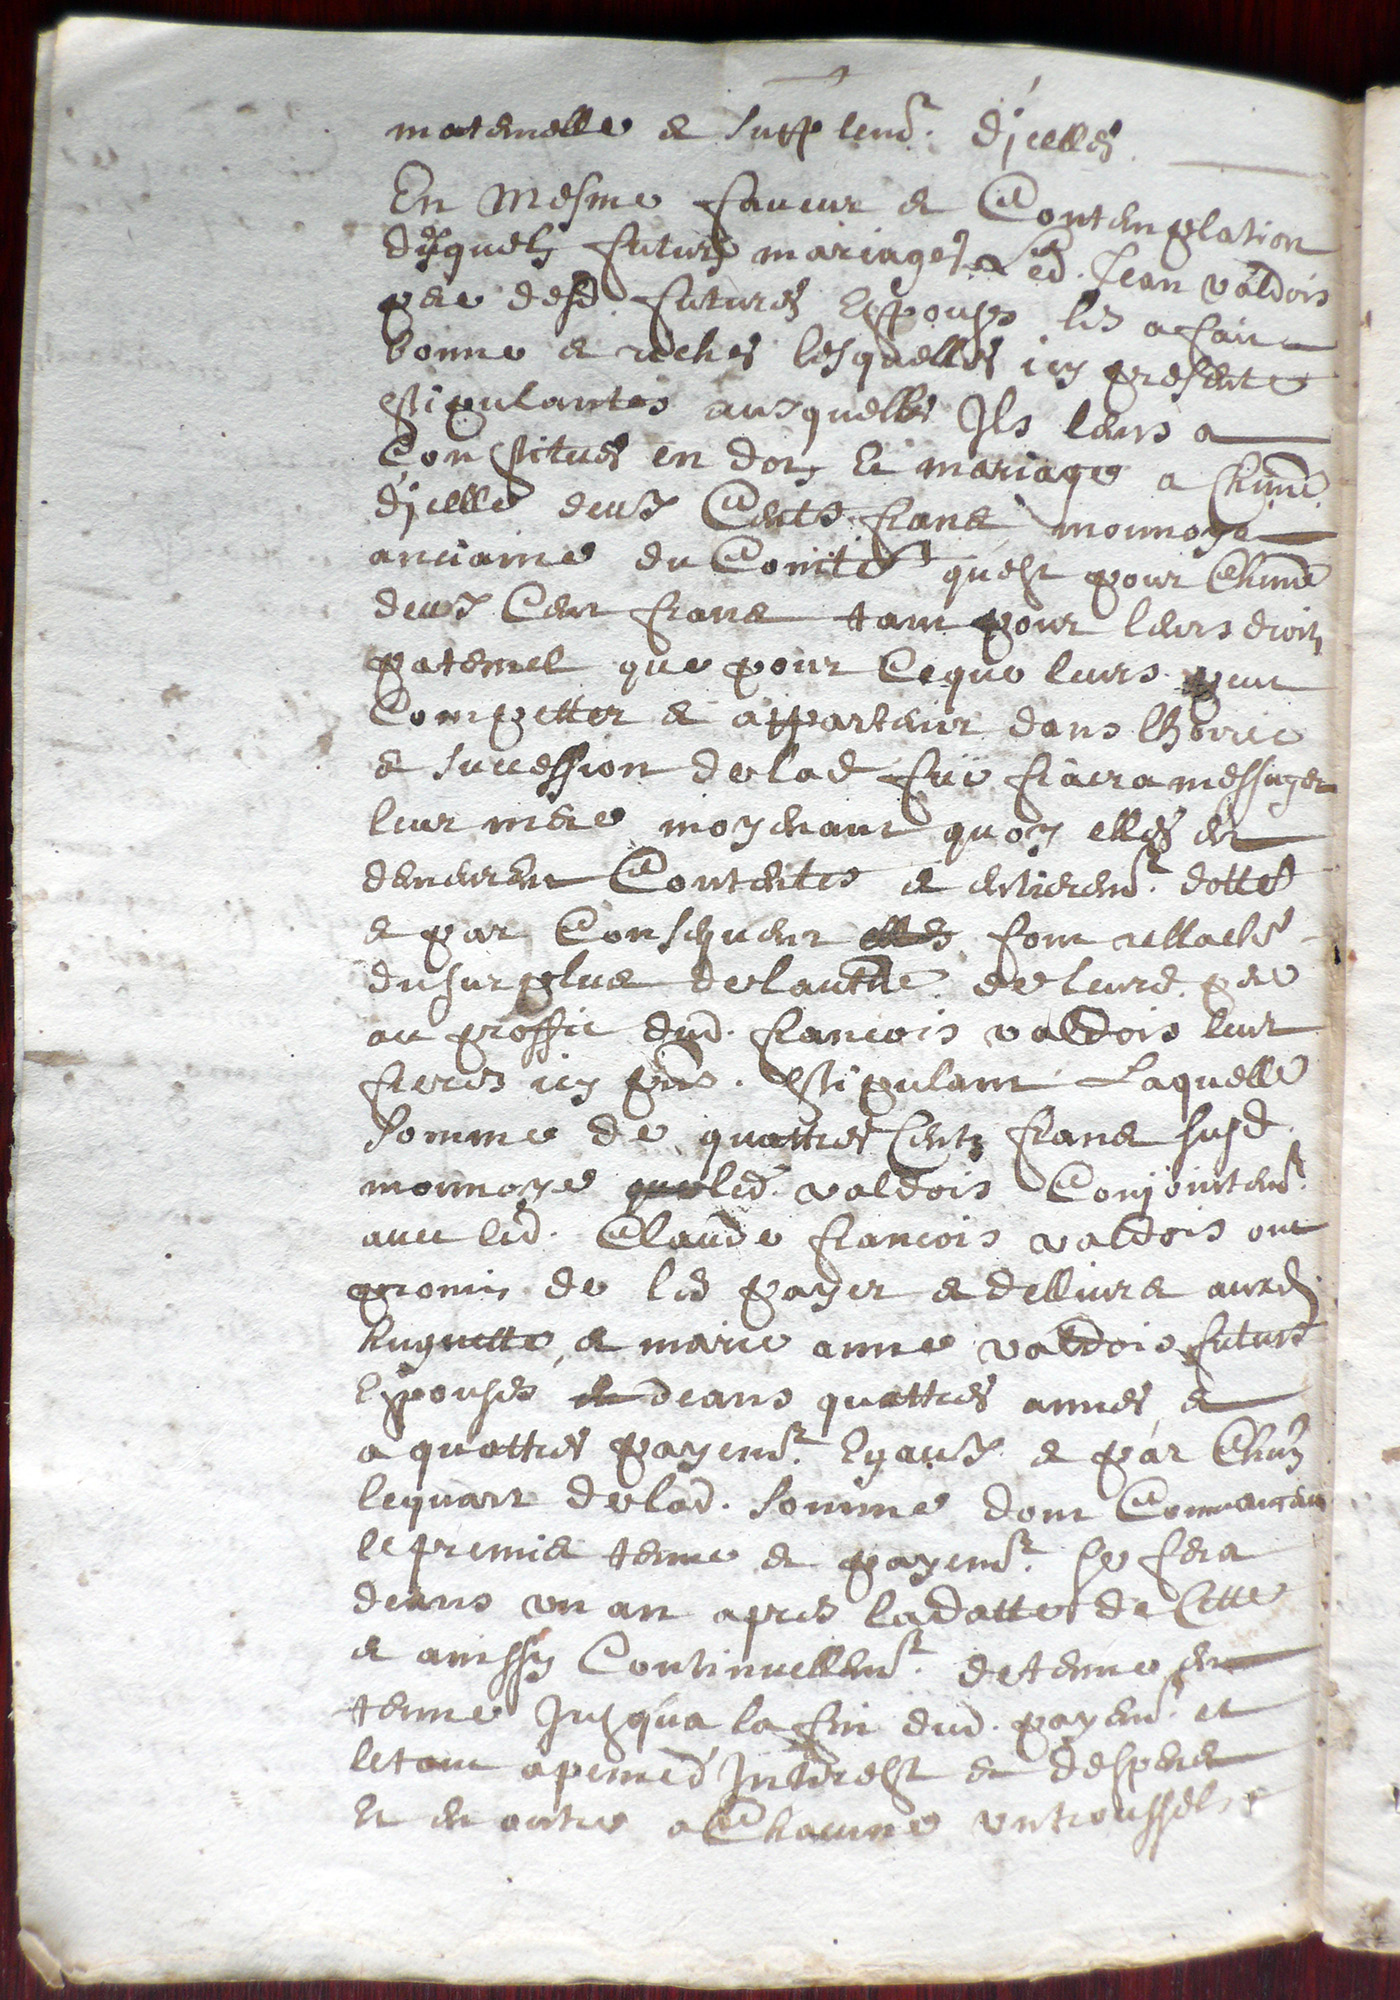 maternelle et supplemt. d'jcelles
En mesme faveur et Contemplation
desquelz futurs mariages led. Jean valdois
pere desd. futures Espouses les a fait
bonne et riches lesquelles icy presente
stipulantes ausquelles Ils leurs a
Constitues en dot Et mariage a Chune
d'jcelle deux Cents frans monnoye
anciaine du Comté quest pour Chune
deux Cent frans tant pour leurs droitz
paternel que pour Ceque leurs peut
Competter et appartenir dans lhoirie
et succession delad. fut messager
leur mere moyenant quoy elles en
demeurent Contentes et entieremt. dotté
et par Consequent font rellache
du surplus delautte de leurd. pere
au proffit dud. francois valdois leur
freres icy pnt. stipulant Laquelle
somme de quattres Centz frans susd.
monnoye led. valdois Conjointemt.
avec led. Claude francois valdois ont
promis de les payer et dellivre auxd.
huguette, et marie anne valdois futurs
Espouses deans quattres annes, et
a quattres payemt. Egaux et par Chun
lequart delad. somme dont Commancant
le premie terme et payemt. se fera
deans un an apres ladatte de Cette
et ainssy Continuellemt. determe en
terme Jusqua la fin dud. payemt. et
letout apeine d'Jnterest et despens
Et en outre a Chacune untroussel